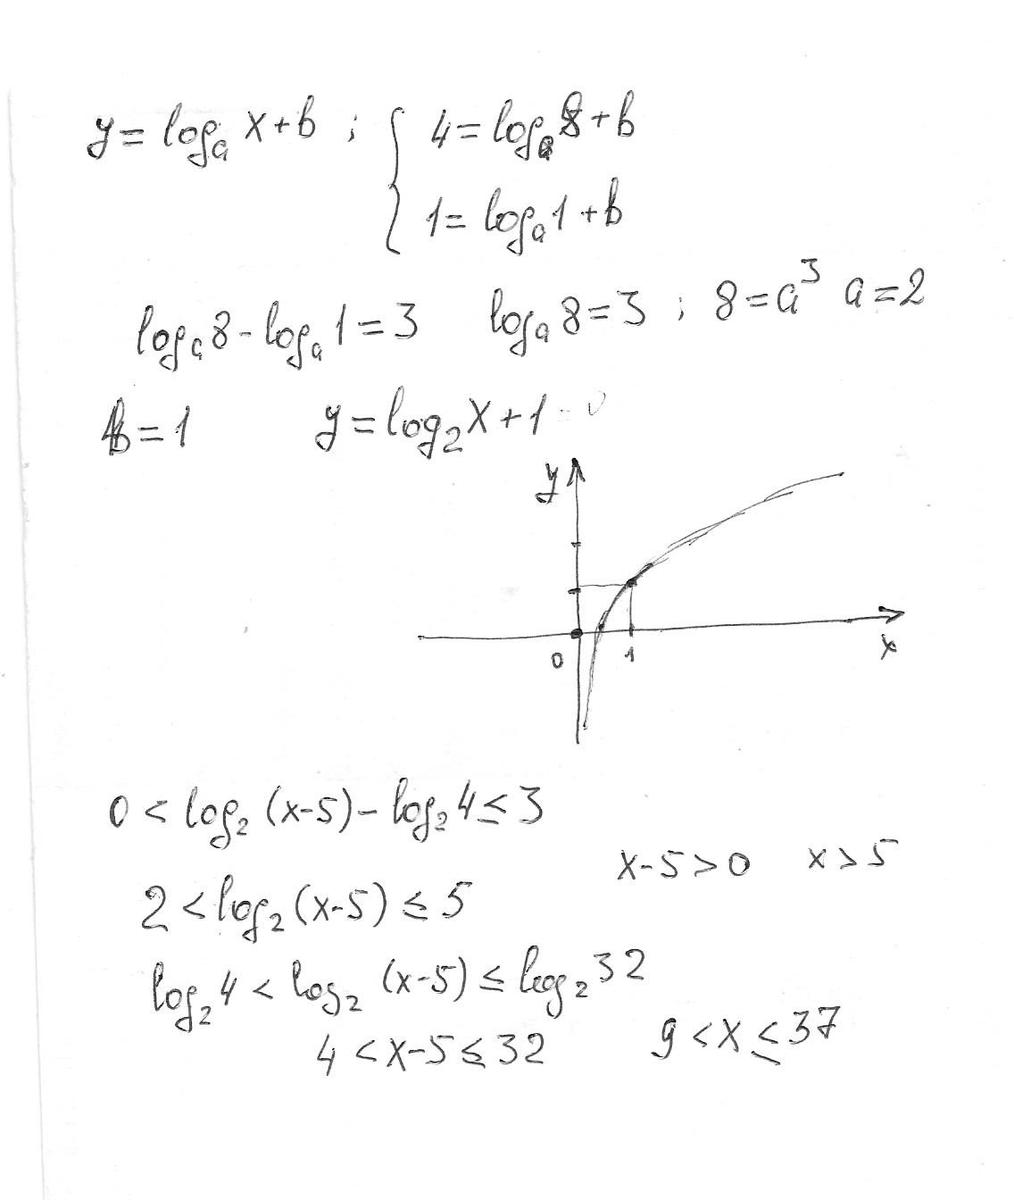 y = logₐ x + b ; { 4 = logₐ 8 + b
1 = logₐ 1 + b
logₐ 8 - logₐ 1 = 3 logₐ 8 = 3 ; 8 = a³ a = 2
b = 1 y = log₂ x + 1
y
0 1 x
0 < log₂ (x-5) - log₂ 4 ≤ 3
x-5 > 0 x > 5
2 < log₂ (x-5) ≤ 5
log₂ 4 < log₂ (x-5) ≤ log₂ 32
4 < x-5 ≤ 32 9 < x ≤ 37